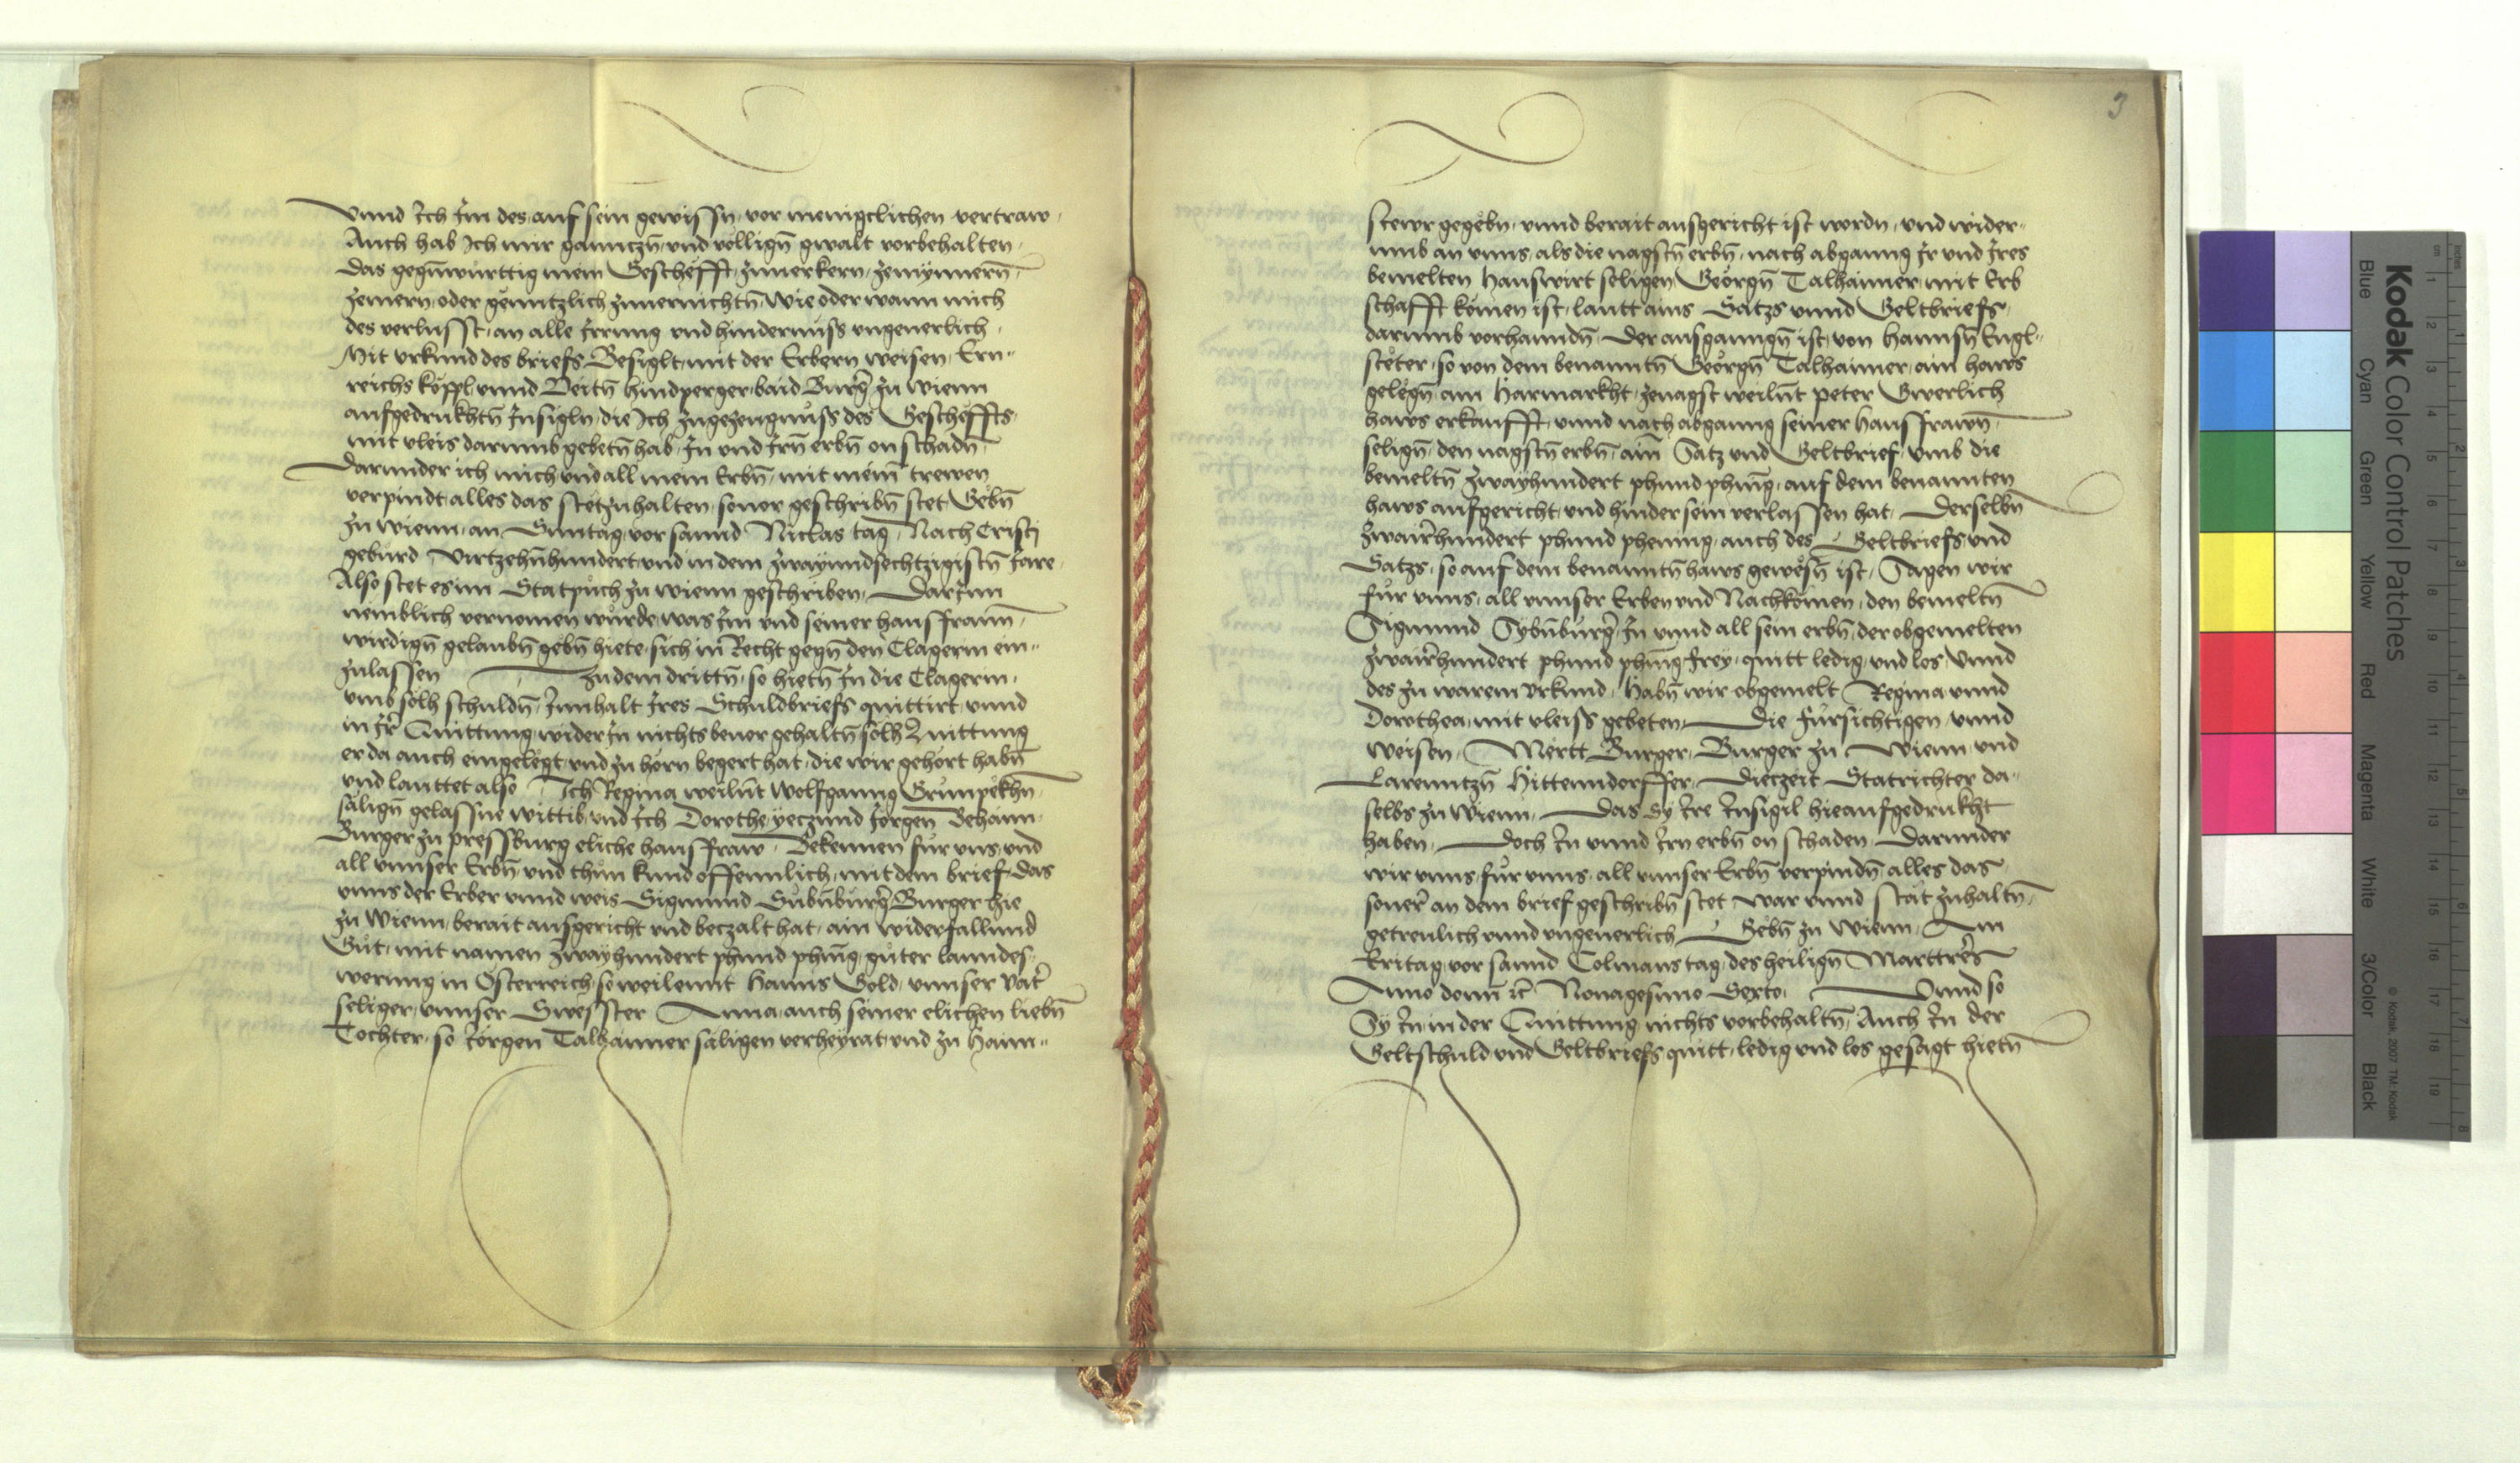 Vnnd Ich Im des auf sein gewissn vor menigclichen vertraw
Auch hab Ich mir ganntzn̄ vnd vollign̄ gwalt vorbehalten
Das gegn̄wurttig mein Geschefft zuuerkern zemynnern̄
zemern oder genntzlich zuuernichtn̄ wie oder wann mich
des verlusst, an alle Irrung vnd hindernuss vngeuerlich
Mit vrkund des briefs Besiglt mit der Erbern weisen Ern=
reichs köppl vnnd Veitn̄ hindperger baid Burḡ zu wienn
aufgedrukhtn̄ Insigln die Ich zugezeugnuss des Gescheffts
mit vleis darumb gebetn̄ hab In vnd Irn̄ erbn̄ on schadn̄
Darunder ich mich vnd all mein Erbn̄ mit mein̄ trewen
verpindt alles das stet zuhalten souer geschribn̄ stet Gebn̄
zu wienn, an Suntag vor sannd Niclas tag, Nach Cristj
geburd Virtzehn̄hundert vnd in dem zwayundsechtzigistn̄ Jare
Also stet es im Statpuch zu wienn geschriben Darzun
nemblich vernomen wurde, was Im vnd seiner hausfraun̄
wirdign̄ gelaubn̄ gebn̄ hiete, sich in̄ Recht gegn̄ den Clagerin ein=
zulassen zu dem drittn̄, so hietn̄ In die Clagerin
vmb solh schuldn̄, Innhalt Ires Schuldbriefs quittirt vnnd
in Ir̄ Quittung wider In nichts beuor gehaltn̄ solh Quittung
er da auch eingelegt, vnd zu horn begert hat, die wir gehort habn̄
vnd lauttet also Ich Regina weilnt Wolfganng Grunpekhn̄
sälign̄ gelassne wittib, vnd Ich Dorothe yeczund Jorgen Behaim
Burger zu pressburg eliche hausfraw Bekennen für vns vnd
all vnnser Erbn̄ vnd thun kund offennlich mit dem brief, Das
vnns der Erber vnnd weis Sigmund Subnburḡ Burger hie
zu Wienn, berait ausgericht vnd beczalt hat, ain widerfallund
Gut, mit namen zwayhundert phund phenn̄g guter lanndes=
werung in Osterreich so weilennt Hanns Gold, vnnser vat̄
seliger vnnser Swesster Anna, auch seiner elichen liebn̄
Tochter, so Jorgen Talhaimer säligen verheyrat, vnd zu Haim=
stewr gegebn̄, vnnd berait ausgericht ist wordn, vnd wider=
umb an vnns, als die nagstn̄ erbn̄, nach abganng Ir vnd Ires
bemelten Hauswirt seligen Georgn̄ Talhaimer, mit Erb
schafft komen ist, lautt ains Satzs vnnd Geltbriefs
darumb vorhanndn̄ Der ausganngn̄ ist, von Hannsn̄ Engl=
steter, so von dem benanntn̄ Georgn̄ Talhaimer, ain haws
gelegn̄ am Harmarkht, zenagst weilnt peter Gwerlich
haws erkaufft, vnnd nach abganng seiner Hausfrawn̄
selign̄, den nagstn̄ erbn̄, ain Satz vnd Geltbrief, vmb die
bemeltn̄ zwayhundert phund phenn̄g, auf dem benannten
haws aufgericht, vnd hinder sein verlassen hat, Derselbn̄
zwair̄hundert phund phening, auch des Geltbriefs vnd
Satzs, so auf dem benanntn̄ haws gewesn̄ ist, Sagen wir
für vnns, all vnnser Erben vnd Nachkomen, den bemeltn̄
Sigmund Sybnburḡ, In vnnd all sein erbn̄, der obgemelten
zwair̄hundert phund phenn̄g frey, quitt ledig, vnd los Vnnd
des zu warem vrkund, Habn̄ wir obgemelt Regina vnnd
Dorothea, mit vleiss gebeten, Die fürsichtigen vnnd
weisen, Mertt Burger, Burger zu Wienn vnd
Larenntzn̄ Hittenndorffer, Dieczeit Statrichter da=
selbs zu Wienn, Das Sy Ire Insigil hieaufgedrukht
haben, Doch In vnnd Irn erbn̄ on schaden Darunder
wir vnns, für vnns, all vnnser Erbn̄ verpindn̄ alles das
souer̄ an dem brief geschribn̄ stet war vnnd stät zuhaltn̄,
getreulich vnnd vngeuerlich Gebn̄ zu Wienn, Am
Eritag, vor sannd Colmans tag, des heilign̄ Marttrer̄s
Anno domi rc̄ Nonagesimo Sexto, Vnnd so
Sy In, in der Quittung nichts vorbehaltn̄, Auch In der
Geltschuld vnd Geltbriefs quitt, ledig vnd los gesagt hietn̄
3
Kodak Color Control Patches
Blue Cyan Green Yellow Red Magenta White 3/Color Black
© Kodak, 2007 TM: Kodak